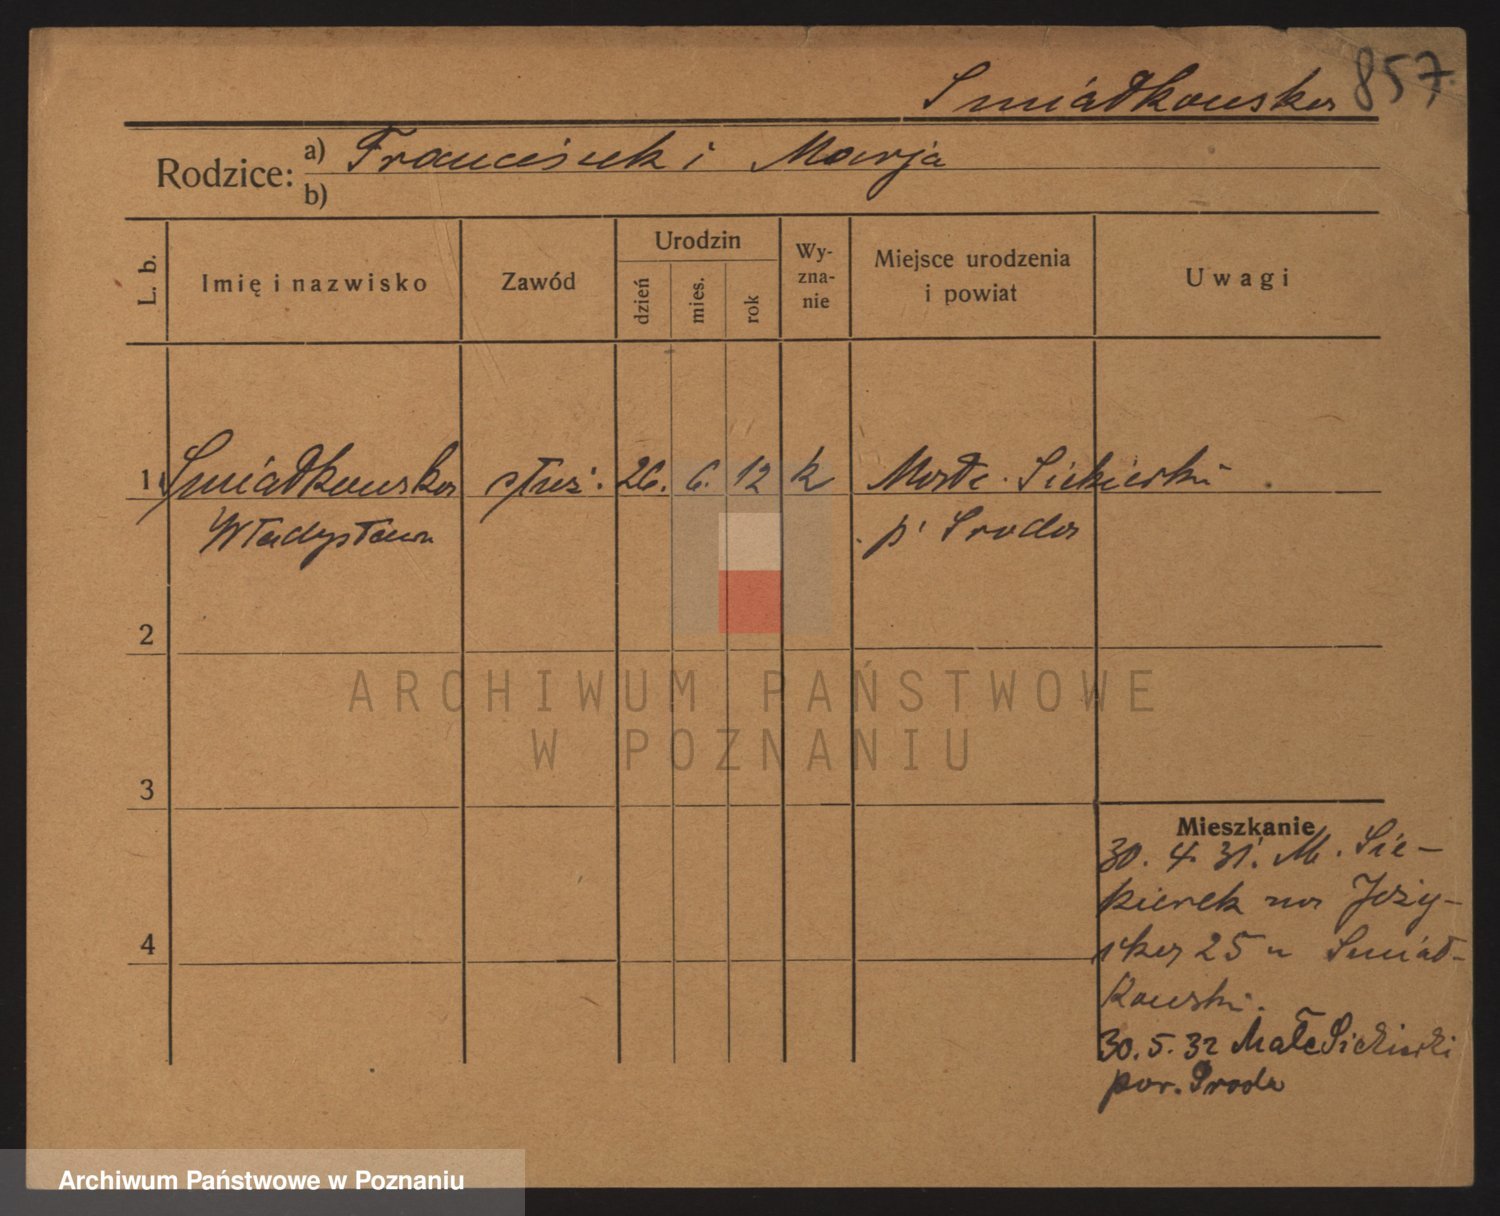 Smiałkowska 857
Rodzice: a) Franciszek i Marja
b)
L. b. Imię i nazwisko Zawód Urodzin dzień mies. rok Wy-zna-nie Miejsce urodzenia i powiat Uwagi
1 Smiałkowska służ. 26. 6. 12 k Małe Siekierki
Władysława p. Sroda
2
3
4
Mieszkanie
30. 4. 31. M. Sie-
kierek na
25 u Smiał-
kowski.
30. 5. 32 Małe Siekierki
pow. Sroda
ARCHIWUM PAŃSTWOWE
W POZNANIU
Archiwum Państwowe w Poznaniu